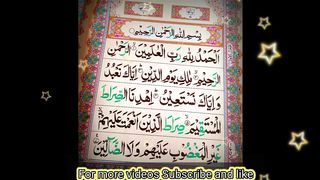 بِسْمِ اللّٰهِ الرَّحْمٰنِ الرَّحِيْمِ
اَلْحَمْدُ لِلّٰهِ رَبِّ الْعٰلَمِيْنَ الرَّحْمٰنِ
الرَّحِيْمِ مٰلِكِ يَوْمِ الدِّيْنِ اِيَّاكَ نَعْبُدُ
وَاِيَّاكَ نَسْتَعِيْنُ اِهْدِنَا الصِّرَاطَ
الْمُسْتَقِيْمَ صِرَاطَ الَّذِيْنَ اَنْعَمْتَ عَلَيْهِمْ
غَيْرِ الْمَغْضُوْبِ عَلَيْهِمْ وَلَا الضَّآلِّيْنَ
For more videos Subscribe and like